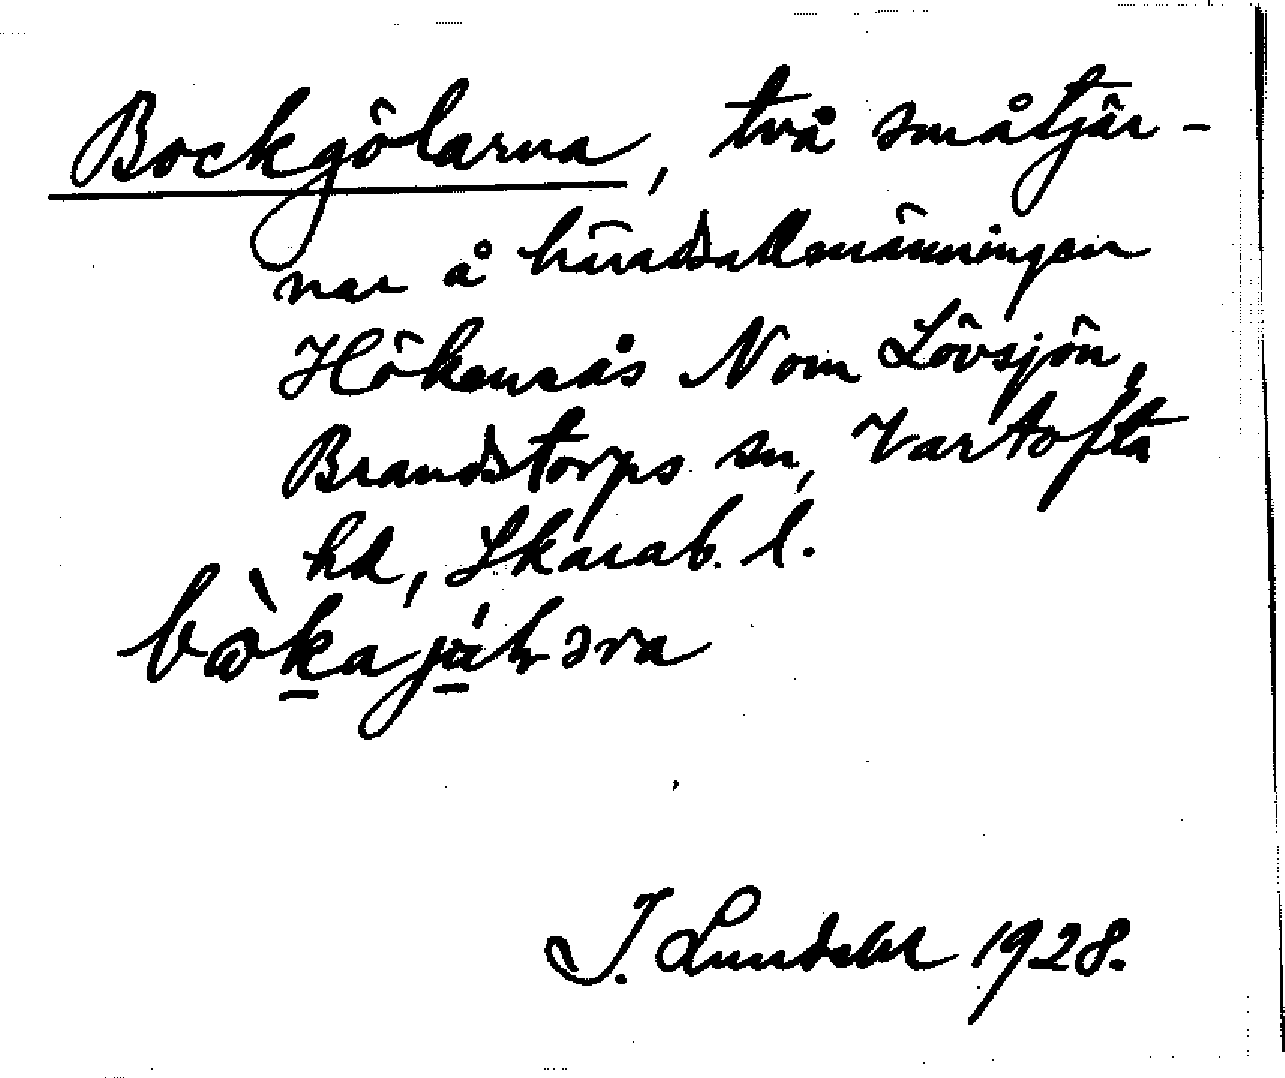 Bockgölarna, två småtjär-
nar å häradsallmänningen
Hökensås N om Lövsjön,
Brandstorps sn, Vartofta
hd, Skarab. l.
J. Lundahl 1928.